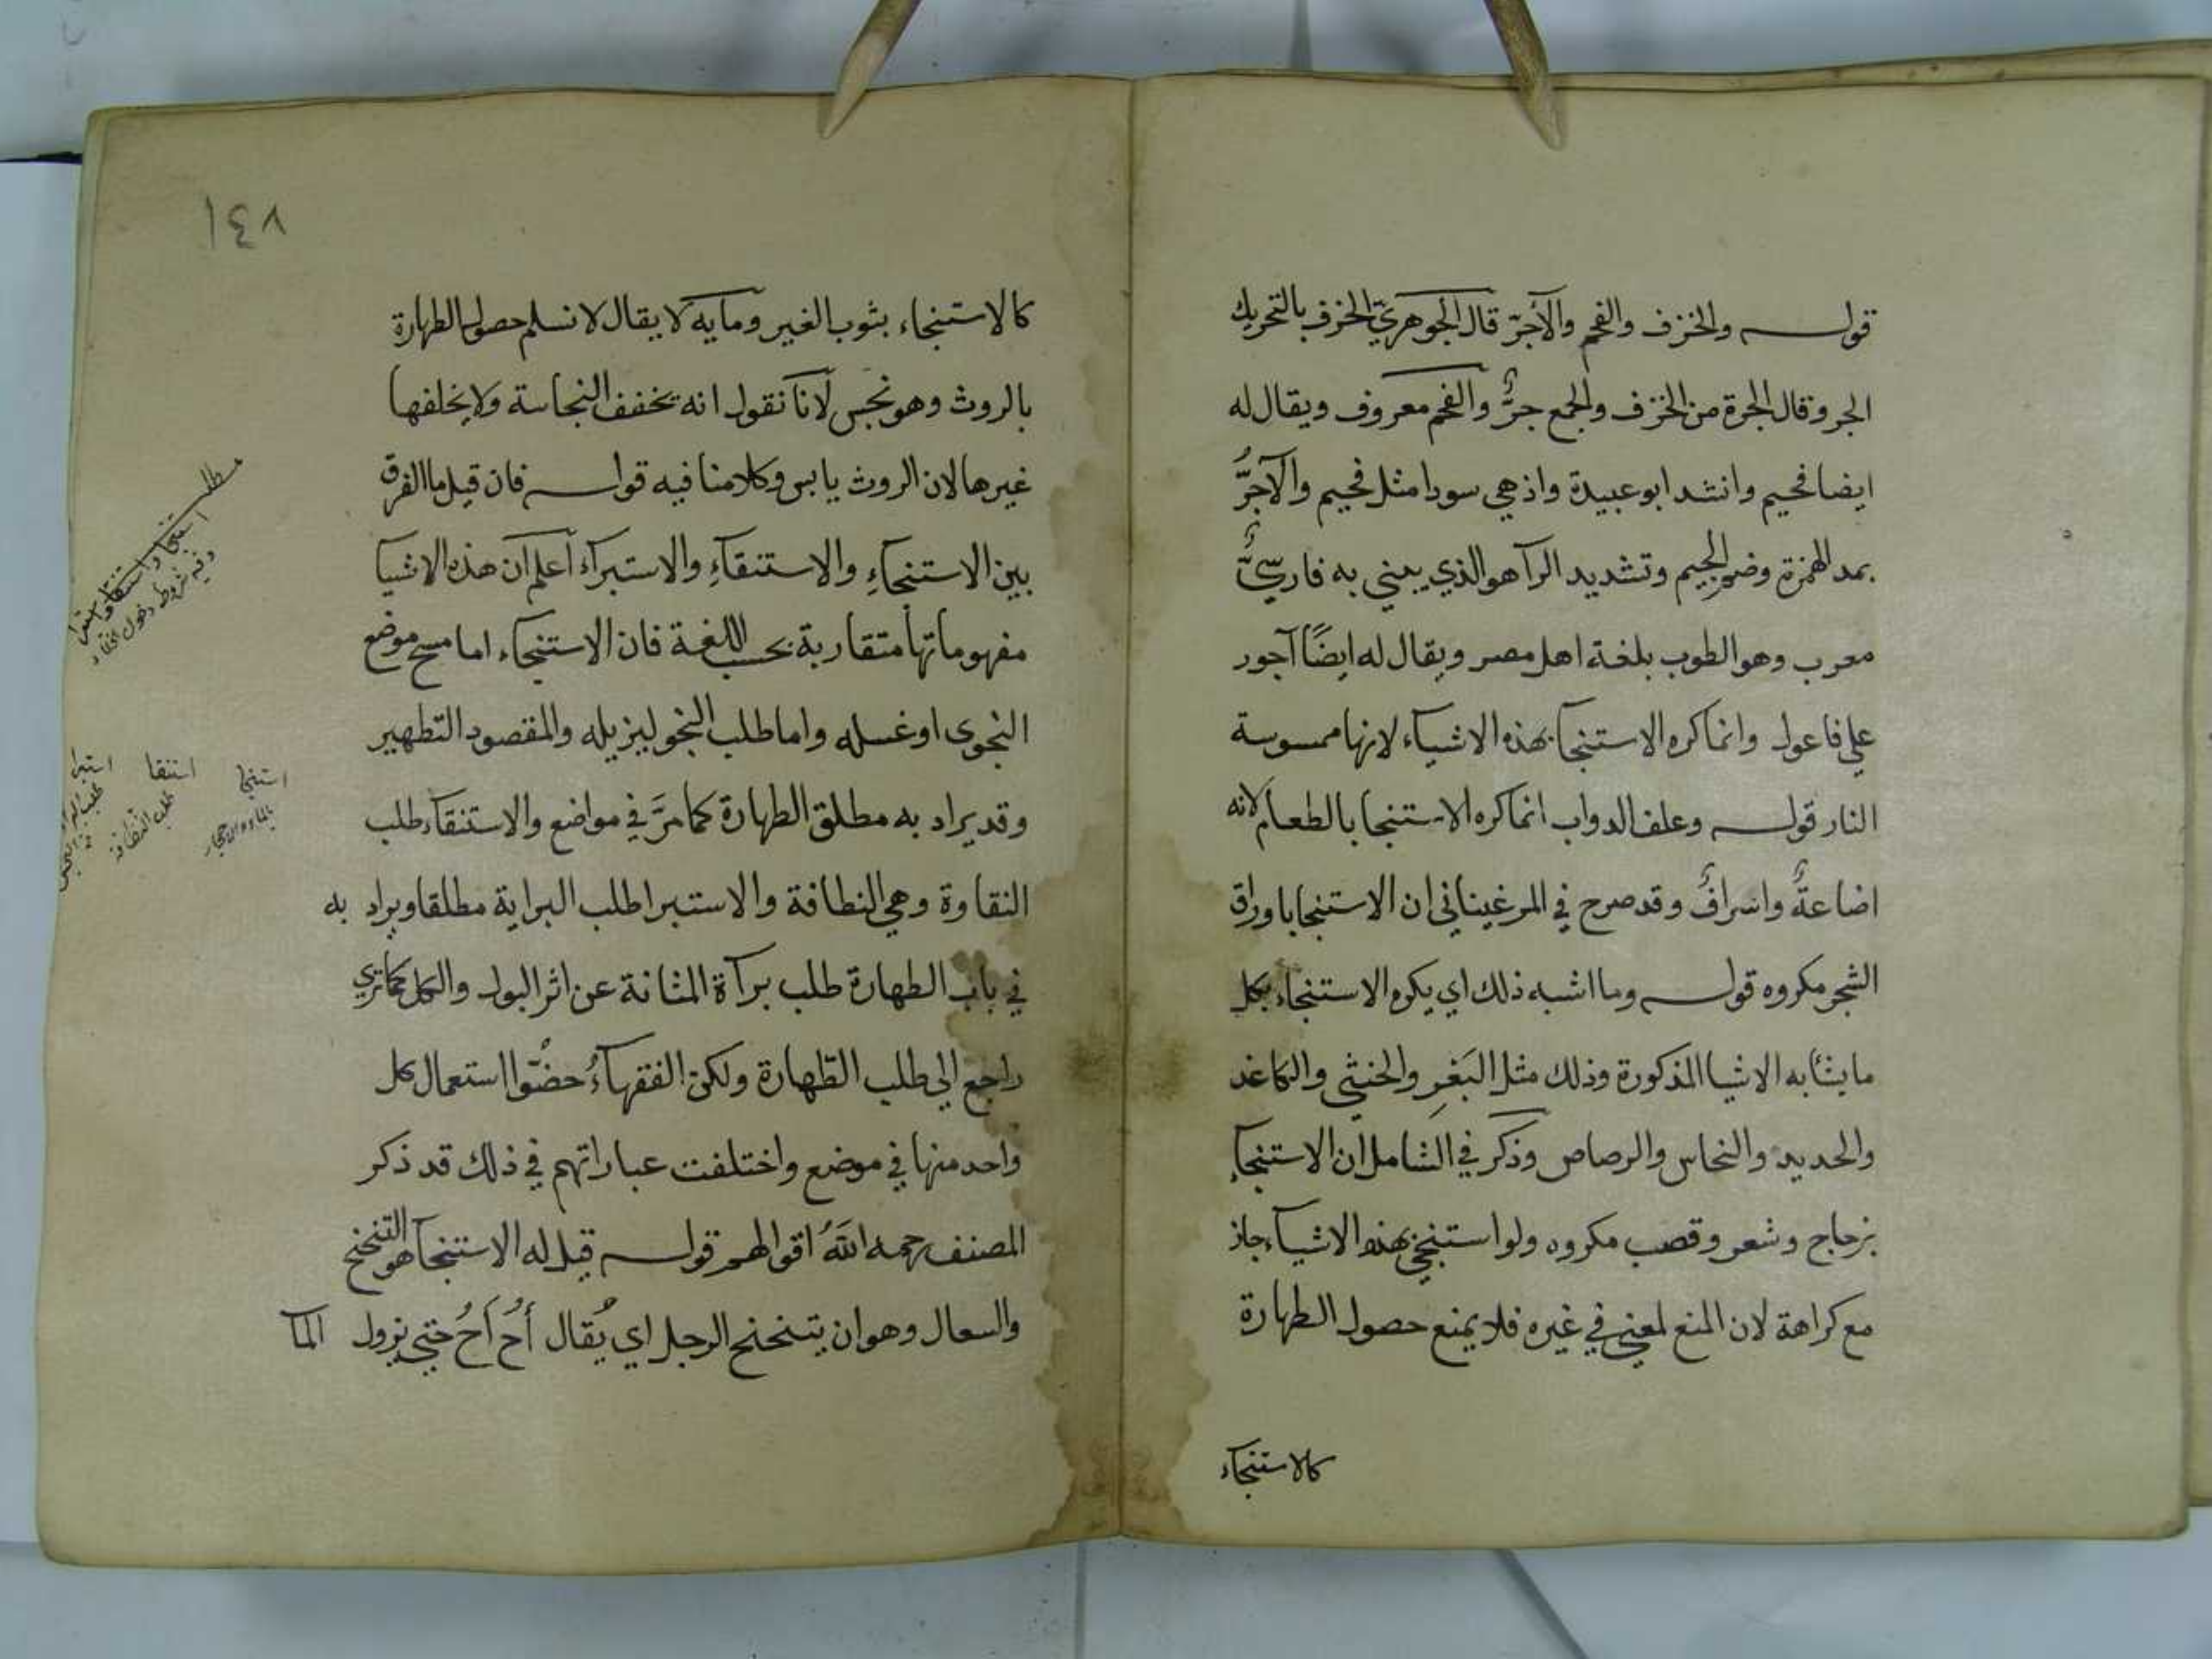 قولـــه والخزف والفحم والآجرّ قال الجوهريّ الخزف بالتحريك
الجر وقال الجرة من الخزف والجمع جرٌّ والفحم معروف ويقال له
ايضا فحيم وانشد ابو عبيدة واذ هي سودا مثل فحيم والآجرُّ
بمد الهمزة وضم الجيم وتشديد الرآ هو الذي يبني به فارسيٌّ
معرب وهو الطوب بلغة اهل مصر ويقال له ايضًا آجور
علي فاعول وانما كره الاستنجا بهذه الاشياء لانها ممسوسة
النار قولـــه وعلف الدواب انما كره الاستنجا بالطعام لانه
اضاعةٌ واسرافٌ وقد صرح في المرغيناني ان الاستنجا باوراق
الشجر مكروه قولـــه وما اشبه ذلك اي يكره الاستنجاء بكل
ما يشابه الاشيا المذكورة وذلك مثل البَعْرِ والخنثي والكاغد
والحديد والنحاس والرصاص وذكر في الشامل ان الاستنجاء
بزجاج وشعر وقصب مكروه ولو استنجي بهذه الاشياء جاز
مع كراهة لان المنع لمعني في غيره فلا يمنع حصول الطهارة
كالاستنجاء
١٤٨
كالاستنجاء بثوب الغير ومايه لا يقال لا نسلم حصول الطهارة
بالروث وهو نجس لانا نقول انه يخفف النجاسة ولا يخلفها
غيرها لان الروث يابس وكلامنا فيه قولـــه فان قيل ما الفرق
بين الاستنجاءِ والاستنقاءِ والاستبراء اعلم ان هذه الاشيا
مفهوماتها متقاربة بحسب اللغة فان الاستنجاء اما مسح موضع
النجوى او غسله واما طلب النجو ليزيله والمقصود التطهير
وقد يراد به مطلق الطهارة كما مرَّ في مواضع والاستنقاء طلب
النقاوة وهي النظافة والاستبرا طلب البراية مطلقا ويراد به
في باب الطهارة طلب برآة المثانة عن اثر البول والكل كما تري
راجع الي طلب الطّهارة ولكن الفقهاءُ خصّوا استعمال كل
واحد منها في موضع واختلفت عباراتهم في ذلك قد ذكر
المصنف رحمه اللّه اقوالهم قولـــه قيل له الاستنجآ هو التنحنح
والسعال وهو ان يتنحنح الرجل اي يُقال أُح أُحُ حتي يزول المآ
مطلب
استنجا واستنقا واستبرا
وفيه شروط دخول الخلاء
استنجا
بالماء والاحجار
استنقا
طلب النظافة
استبرا